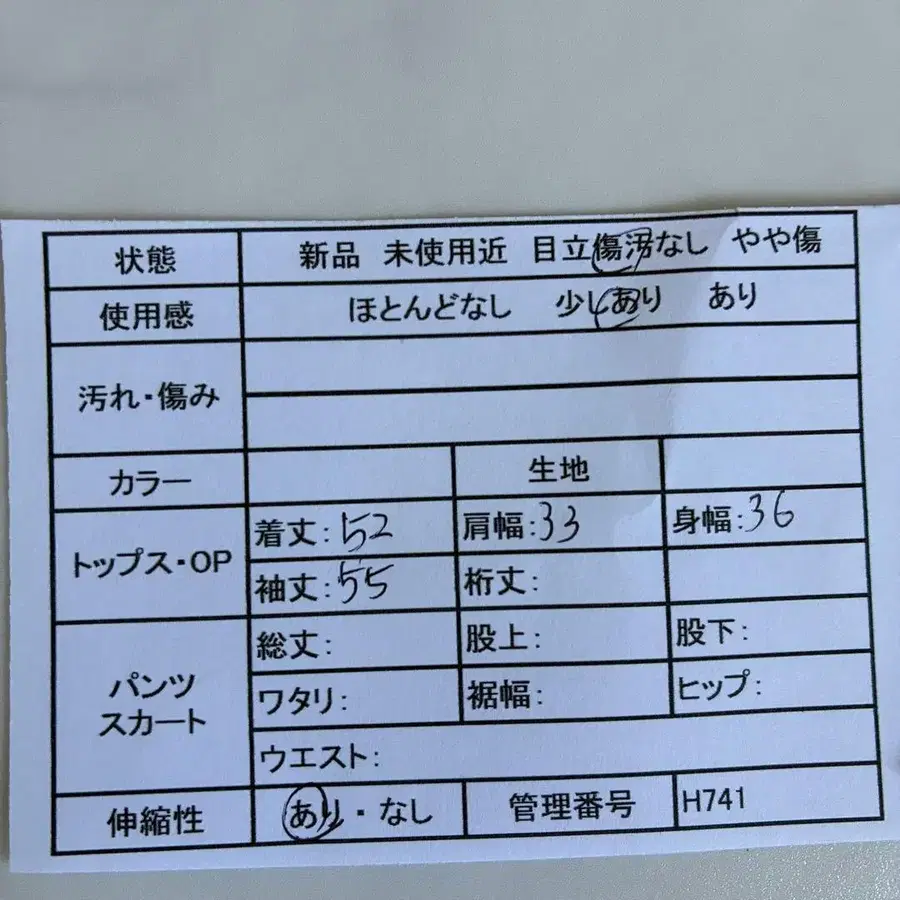 状態 新品 未使用近 目立傷汚なし やや傷
使用感 ほとんどなし 少しあり あり
汚れ・傷み
カラー 生地
トップス・OP 着丈:52 肩幅:33 身幅:36
袖丈:55 裄丈:
パンツ スカート 総丈: 股上: 股下:
ワタリ: 裾幅: ヒップ:
ウエスト:
伸縮性 あり・なし 管理番号 H741